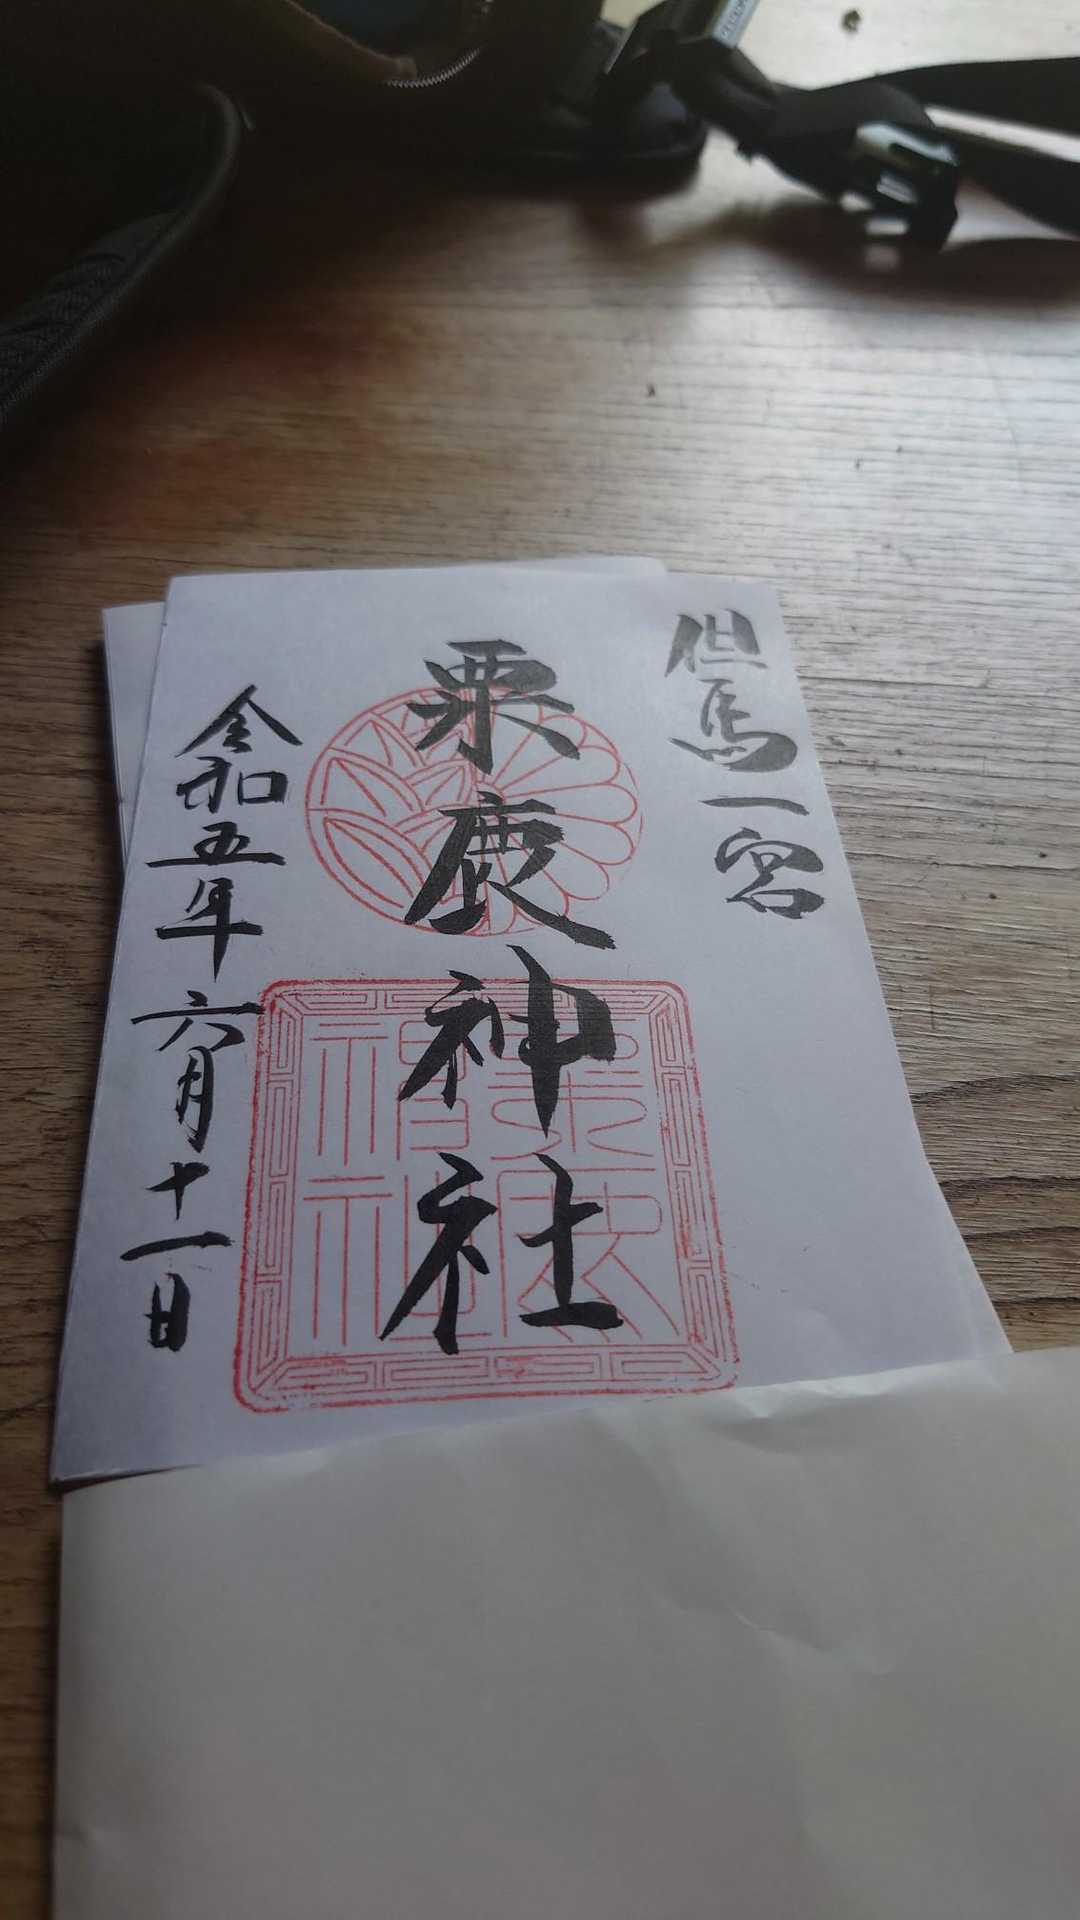 但馬一宮
粟鹿神社
令和五年六月十一日
粟鹿神社